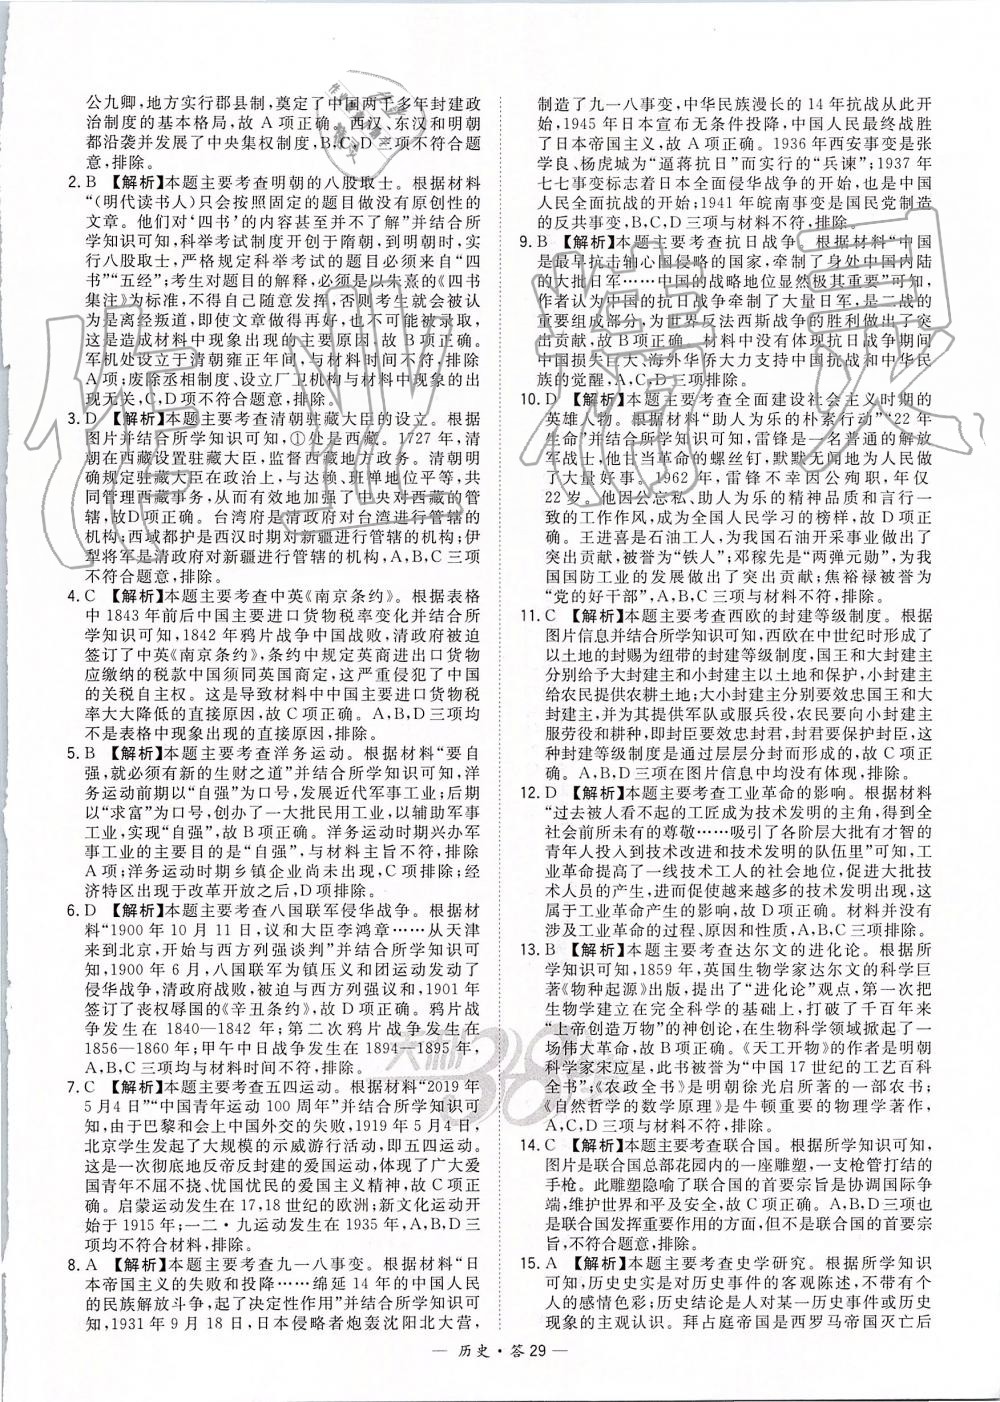 公九卿，地方实行郡县制，奠定了中国两千多年封建政
治制度的基本格局，故 A 项正确。西汉、东汉和明朝
都沿袭并发展了中央集权制度，B、C、D三项不符合题
意，排除。
2. B 【解析】本题主要考查明朝的八股取士。根据材料
“(明代读书人)只会按照固定的题目做没有原创性的
文章。他们对‘四书’的内容甚至并不了解”并结合所
学知识可知，科举考试制度开创于隋朝，到明朝时，实
行八股取士，严格规定科举考试的题目必须来自“四
书”“五经”；考生对题目的解释，必须是以朱熹的《四书
集注》为标准，不得自己随意发挥，否则考生就会被认
为是离经叛道，即使文章做得再好，也不可能被录取，
这是造成材料中现象出现的主要原因，故 B 项正确。
军机处设立于清朝雍正年间，与材料时间不符，排除
A 项；废除丞相制度、设立厂卫机构与材料中现象的出
现无关，C,D项不符合题意，排除。
3. D 【解析】本题主要考查清朝驻藏大臣的设立。根据
图片并结合所学知识可知，①处是西藏。1727 年，清
朝在西藏设置驻藏大臣，监督西藏地方政务。清朝明
确规定驻藏大臣在政治上，与达赖、班禅地位平等，共
同管理西藏事务，从而有效地加强了中央对西藏的管
辖，故D项正确。台湾府是清政府对台湾进行管辖的
机构；西域都护是西汉时期对新疆进行管辖的机构；伊
犁将军是清政府对新疆进行管辖的机构，A,B,C 三项
不符合题意，排除。
4. C 【解析】本题主要考查中英《南京条约》。根据表格
中 1843 年前后中国主要进口货物税率变化并结合所
学知识可知，1842 年鸦片战争中国战败，清政府被迫
签订了中英《南京条约》，条约中规定英商进出口货物
应缴纳的税款中国须同英国商定，这严重侵犯了中国
的关税自主权。这是导致材料中中国主要进口货物税
率大大降低的直接原因，故 C 项正确。A,B,D三项均
不是表格中现象出现的直接原因，排除。
5. B 【解析】本题主要考查洋务运动。根据材料“要自
强，就必须有新的生财之道”并结合所学知识可知，洋
务运动前期以“自强”为口号，发展近代军事工业；后期
以“求富”为口号，创办了一大批民用工业，以辅助军事
工业，实现“自强”，故 B 项正确。洋务运动时期兴办军
事工业的主要目的是“自强”，与材料主旨不符，排除
A 项；洋务运动时期乡镇企业尚未出现，排除 C 项；经
济特区出现于改革开放之后，D 项排除。
6. D 【解析】本题主要考查八国联军侵华战争。根据材
料“1900 年 10 月 11 日，议和大臣李鸿章……从天津
来到北京，开始与西方列强谈判”并结合所学知识可
知，1900 年 6 月，八国联军为镇压义和团运动发动了
侵华战争，清政府战败，被迫与西方列强议和，1901 年
签订了丧权辱国的《辛丑条约》，故 D 项正确。鸦片战
争发生在 1840—1842 年；第二次鸦片战争发生在
1856—1860 年；甲午中日战争发生在 1894—1895 年，
A,B,C 三项均与材料时间不符，排除。
7. C 【解析】本题主要考查五四运动。根据材料“2019 年
5月4日”“中国青年运动 100 周年”并结合所学知识可
知，由于巴黎和会上中国外交的失败，1919 年 5 月 4 日，
北京学生发起了大规模的示威游行活动，即五四运动。
这是一次彻底地反帝反封建的爱国运动，体现了广大爱
国青年不屈不挠、忧国忧民的爱国主义精神，故 C 项正
确。启蒙运动发生在 17,18 世纪的欧洲；新文化运动开
始于 1915 年；一二·九运动发生在 1935 年，A,B,D 三
项均不符合材料，排除。
8. A 【解析】本题主要考查九一八事变。根据材料“日
本帝国主义的失败和投降……绵延 14 年的中国人民
的民族解放斗争，起了决定性作用”并结合所学知识可知，
1931 年 9 月 18 日，日本侵略者炮轰沈阳北大营，
制造了九一八事变，中华民族漫长的 14 年抗战从此开
始，1945 年日本宣布无条件投降，中国人民最终战胜
了日本帝国主义，故 A 项正确。1936 年西安事变是张
学良、杨虎城为“逼蒋抗日”而实行的“兵谏”；1937 年
七七事变标志着日本全面侵华战争的开始，也是中国
人民全面抗战的开始；1941 年皖南事变是国民党制造
的反共事变，B,C,D 三项与材料不符，排除。
9. B 【解析】本题主要考查抗日战争。根据材料“中国
是最早抗击轴心国侵略的国家，牵制了身处中国内陆
的大批日军……中国的战略地位显然极其重要”可知，
作者认为中国的抗日战争牵制了大量日军，是二战的
重要组成部分，为世界反法西斯战争的胜利做出了突
出贡献，故 B 项正确。材料中没有体现抗日战争期间
中国损失巨大、海外华侨大力支持中国抗战和中华民
族的觉醒，A,C,D三项排除。
10. D 【解析】本题主要考查全面建设社会主义时期的
英雄人物。根据材料“助人为乐的朴素行动”“22 年
生命”并结合所学知识可知，雷锋是一名普通的解放
军战士，他甘当革命的螺丝钉，默默无闻地为人民做
了大量好事。1962 年，雷锋不幸因公殉职，年仅
22 岁。他因公忘私、助人为乐的精神品质和言行一
致的工作作风，成为全国人民学习的榜样，故 D 项正
确。王进喜是石油工人，为我国石油开采事业做出了
突出贡献，被誉为“铁人”；邓稼先是“两弹元勋”，为我
国国防工业的发展做出了突出贡献；焦裕禄被誉为
“党的好干部”，A,B,C 三项与材料不符，排除。
11. C 【解析】本题主要考查西欧的封建等级制度。根据
图片信息并结合所学知识可知，西欧在中世纪时形成了
以土地的封赐为纽带的封建等级制度，国王和大封建主
分别给予大封建主和小封建主以土地和保护，小封建主
给农民提供农耕土地；大小封建主分别要效忠国王和大
封建主，并为其提供军队或服兵役，农民要向小封建主
服劳役和耕种，即封臣要效忠封君，封君要保护封臣，这
种封建等级制度是通过层层分封而形成的，故C项正
确。A,B,D 三项在图片信息中均没有体现，排除。
12. D 【解析】本题主要考查工业革命的影响。根据材料
“过去被人看不起的工匠成为技术发明的主角，得到全
社会前所未有的尊敬……吸引了各阶层大批有才智的
青年人投入到技术改进和技术发明的队伍里”可知，工
业革命提高了一线技术工人的社会地位，促进大批技
术人员的产生，进而促使越来越多的技术发明出现，这
属于工业革命产生的影响，故 D 项正确。材料并没有
涉及工业革命的过程、原因和性质，A,B,C 三项排除。
13. B 【解析】本题主要考查达尔文的进化论。根据所
学知识可知，1859 年，英国生物学家达尔文的科学巨
著《物种起源》出版，提出了“进化论”观点，第一次把
生物学建立在完全科学的基础上，打破了千百年来
“上帝创造万物”的神创论，在生物科学领域掀起了一
场伟大革命，故 B 项正确。《天工开物》的作者是明朝
科学家宋应星，此书被誉为“中国 17 世纪的工艺百科
全书”；《农政全书》是明朝徐光启所著的一部农书；
《自然哲学的数学原理》是牛顿重要的物理学著作，
A,C,D 三项与材料不符，排除。
14. C 【解析】本题主要考查联合国。根据所学知识可知，
图片是联合国总部花园内的一座雕塑，一支枪管打结的
手枪。此雕塑隐喻了联合国的首要宗旨是协调国际争
端，维护世界和平及安全，故 C 项正确。A,B,D 三项也
是联合国发挥重要作用的方面，但不是联合国的首要宗
旨，不符合题意，排除。
15. A 【解析】本题主要考查史学研究。根据所学知识
可知，历史史实是对历史事件的客观陈述，不带有个
人的感情色彩；历史结论是人对某一历史事件或历史
现象的主观认识。拜占庭帝国是西罗马帝国灭亡后
— 历史·答 29 —
作业精灵